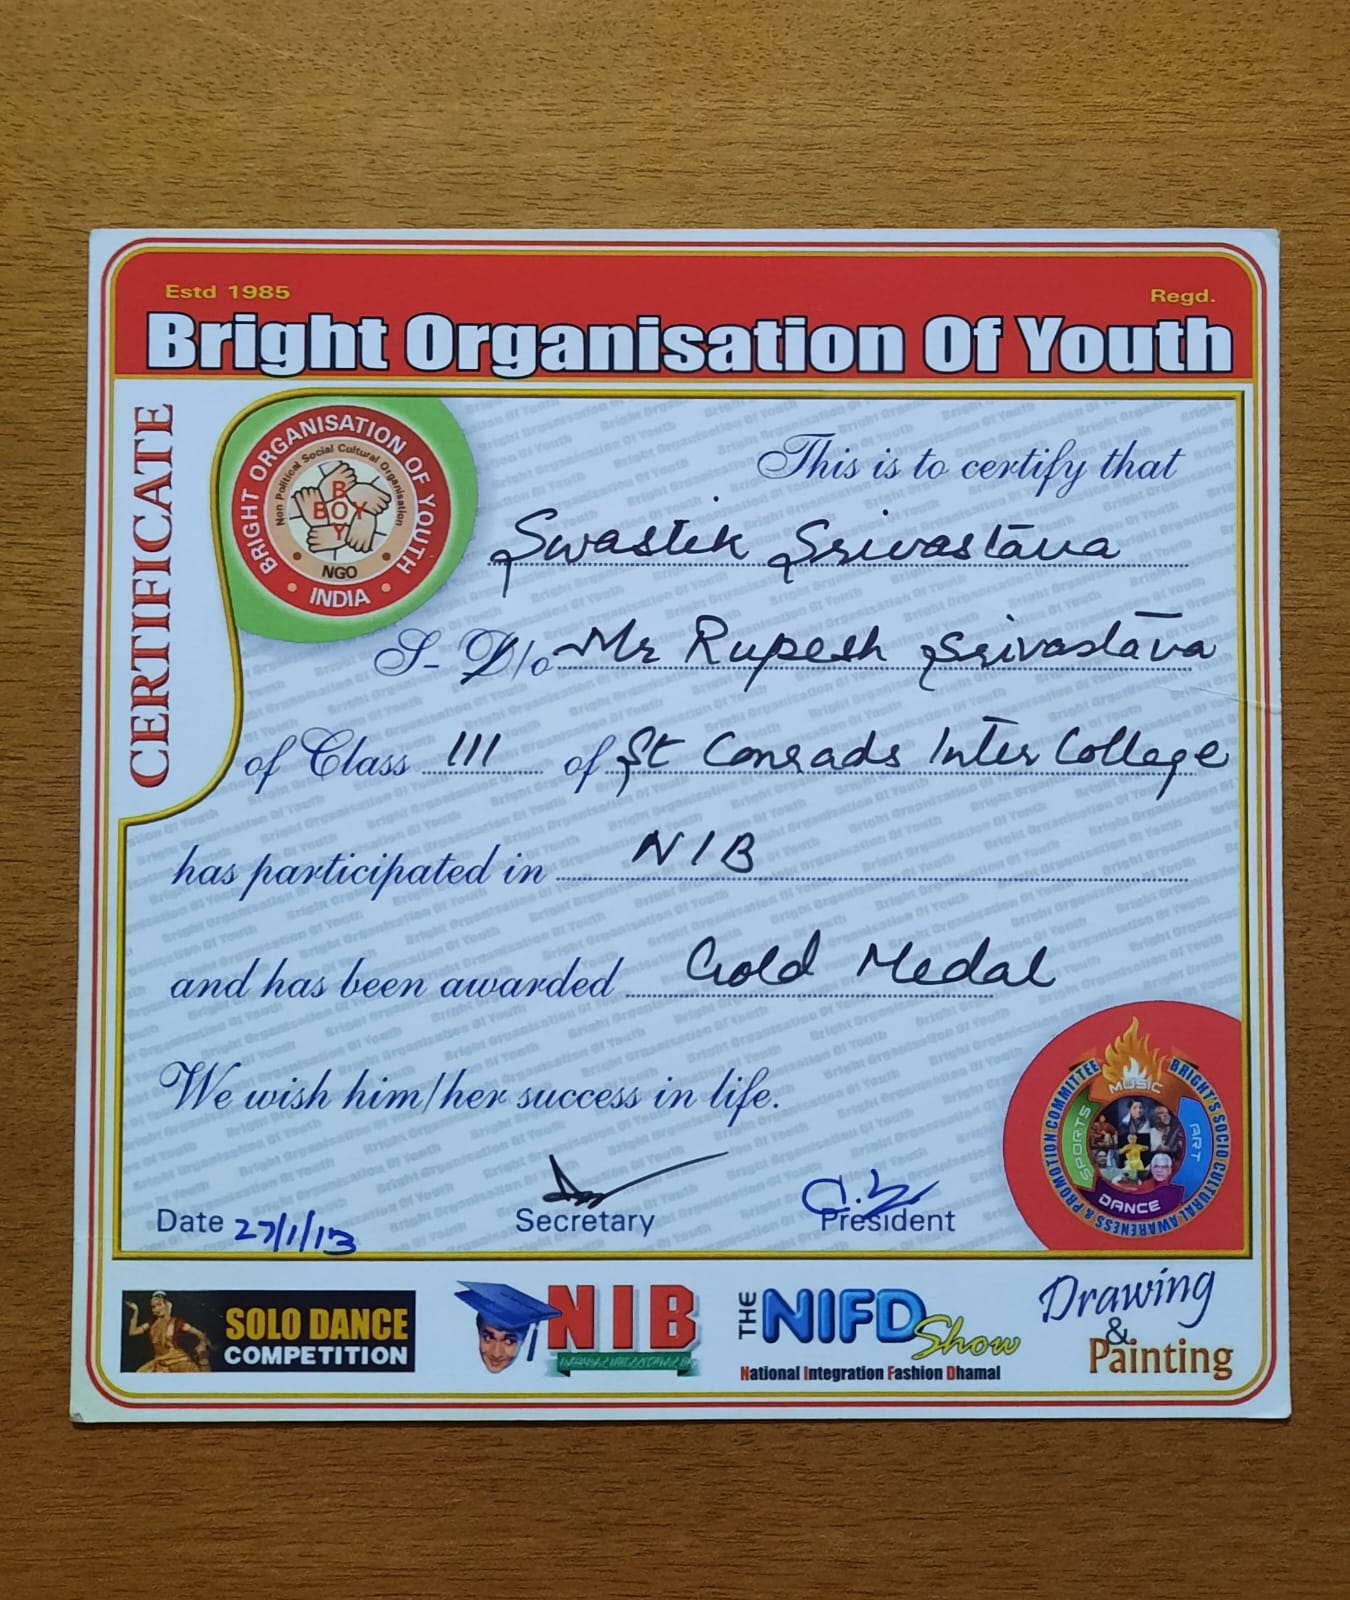 Estd 1985
Regd.
Bright Organisation Of Youth
CERTIFICATE
BRIGHT ORGANISATION OF YOUTH
Non Political Social Cultural Organisation
B
BOY
Y
NGO
INDIA
This is to certify that
Swastik Srivastava
S- D/o Mr Rupesh Srivastava
of Class III of St Conrads Inter College
has participated in NIB
and has been awarded Gold Medal
We wish him/her success in life.
Date 27/1/13
Secretary
President
BRIGHT'S SOCIO CULTURAL AWARENESS & PROMOTION COMMITTEE
MUSIC
SPORTS
ART
DANCE
SOLO DANCE
COMPETITION
NIB
THE NIFD Show
National Integration Fashion Dhamal
Drawing
&
Painting